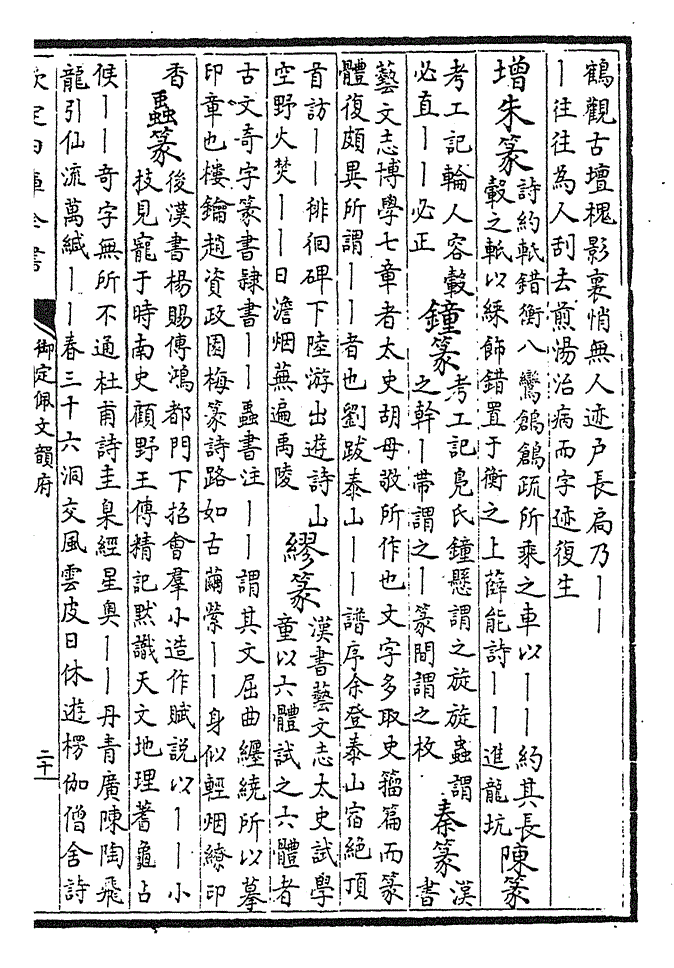 鶴觀古壇槐影裏悄無人迹户長扄乃丨丨
丨往往為人刮去煎湯治病而字迹復生
增朱篆
詩約軧錯衡八鸞鶬鶬疏所乘之車以丨丨約其長
轂之軧以綵飾錯置于衡之上薛能詩丨丨進龍坑
陳篆
考工記輪人容轂
必直丨丨必正
鐘篆
考工記鳧氏鐘懸謂之旋旋蟲謂
之幹丨帶謂之丨篆間謂之枚
秦篆
漢
書
藝文志博學七章者太史胡母敬所作也文字多取史籀篇而篆
體復頗異所謂丨丨者也劉跋泰山丨丨譜序余登泰山宿絶頂
首訪丨丨徘徊碑下陸游出遊詩山
空野火焚丨丨日澹烟蕪遍禹陵
繆篆
漢書藝文志太史試學
童以六體試之六體者
古文奇字篆書隷書丨丨蟲書注丨丨謂其文屈曲纏繞所以摹
印章也樓鑰趙資政園梅篆詩路如古繭縈丨丨身似輕烟繚印
香
蟲篆
後漢書楊賜傳鴻都門下招會羣小造作賦説以丨丨小
技見寵于時南史顧野王傳精記默識天文地理蓍龜占
候丨丨奇字無所不通杜甫詩圭臬經星奥丨丨丹青廣陳陶飛
龍引仙流萬緘丨丨春三十六洞交風雲皮日休遊楞伽僧舍詩
欽定四庫全書
御定佩文韻府
二十